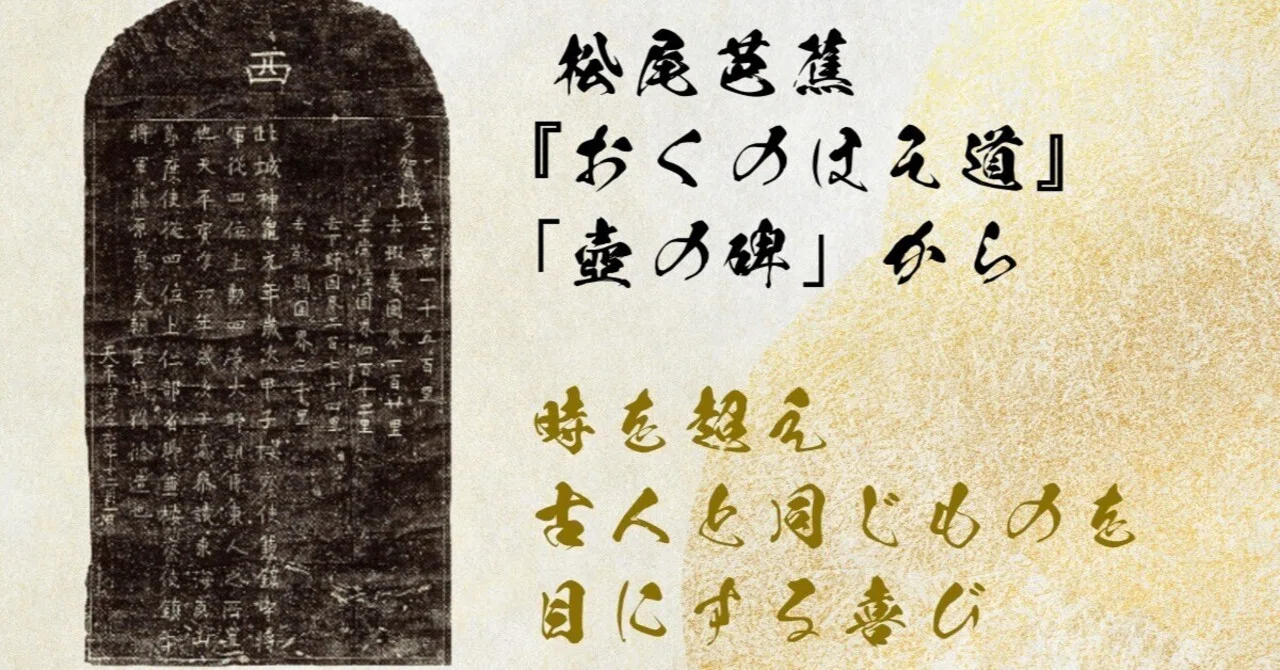 西
多賀城
去京一千五百里
去蝦夷國界一百廿里
去常陸國界四百十二里
去下野國界二百七十四里
去靺鞨國界三千里
此城神龜元年歲次甲子按察使兼鎮守將
軍從四位上勳四等大野朝臣東人之所置
也天平寶字六年歲次壬寅參議東海東山
節度使從四位上仁部省卿兼按察使鎮守
將軍藤原惠美朝臣朝獦修造也
天平寶字六年十二月一日
松尾芭蕉
『おくのほそ道』
「壺の碑」から
時を超え
古人と同じものを
目にする喜び